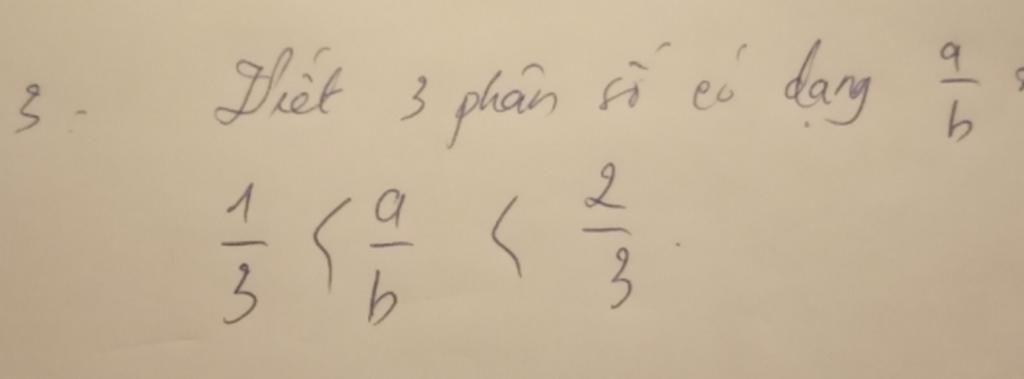 3 - Viết 3 phân số có dạng a/b
1/3 < a/b < 2/3.